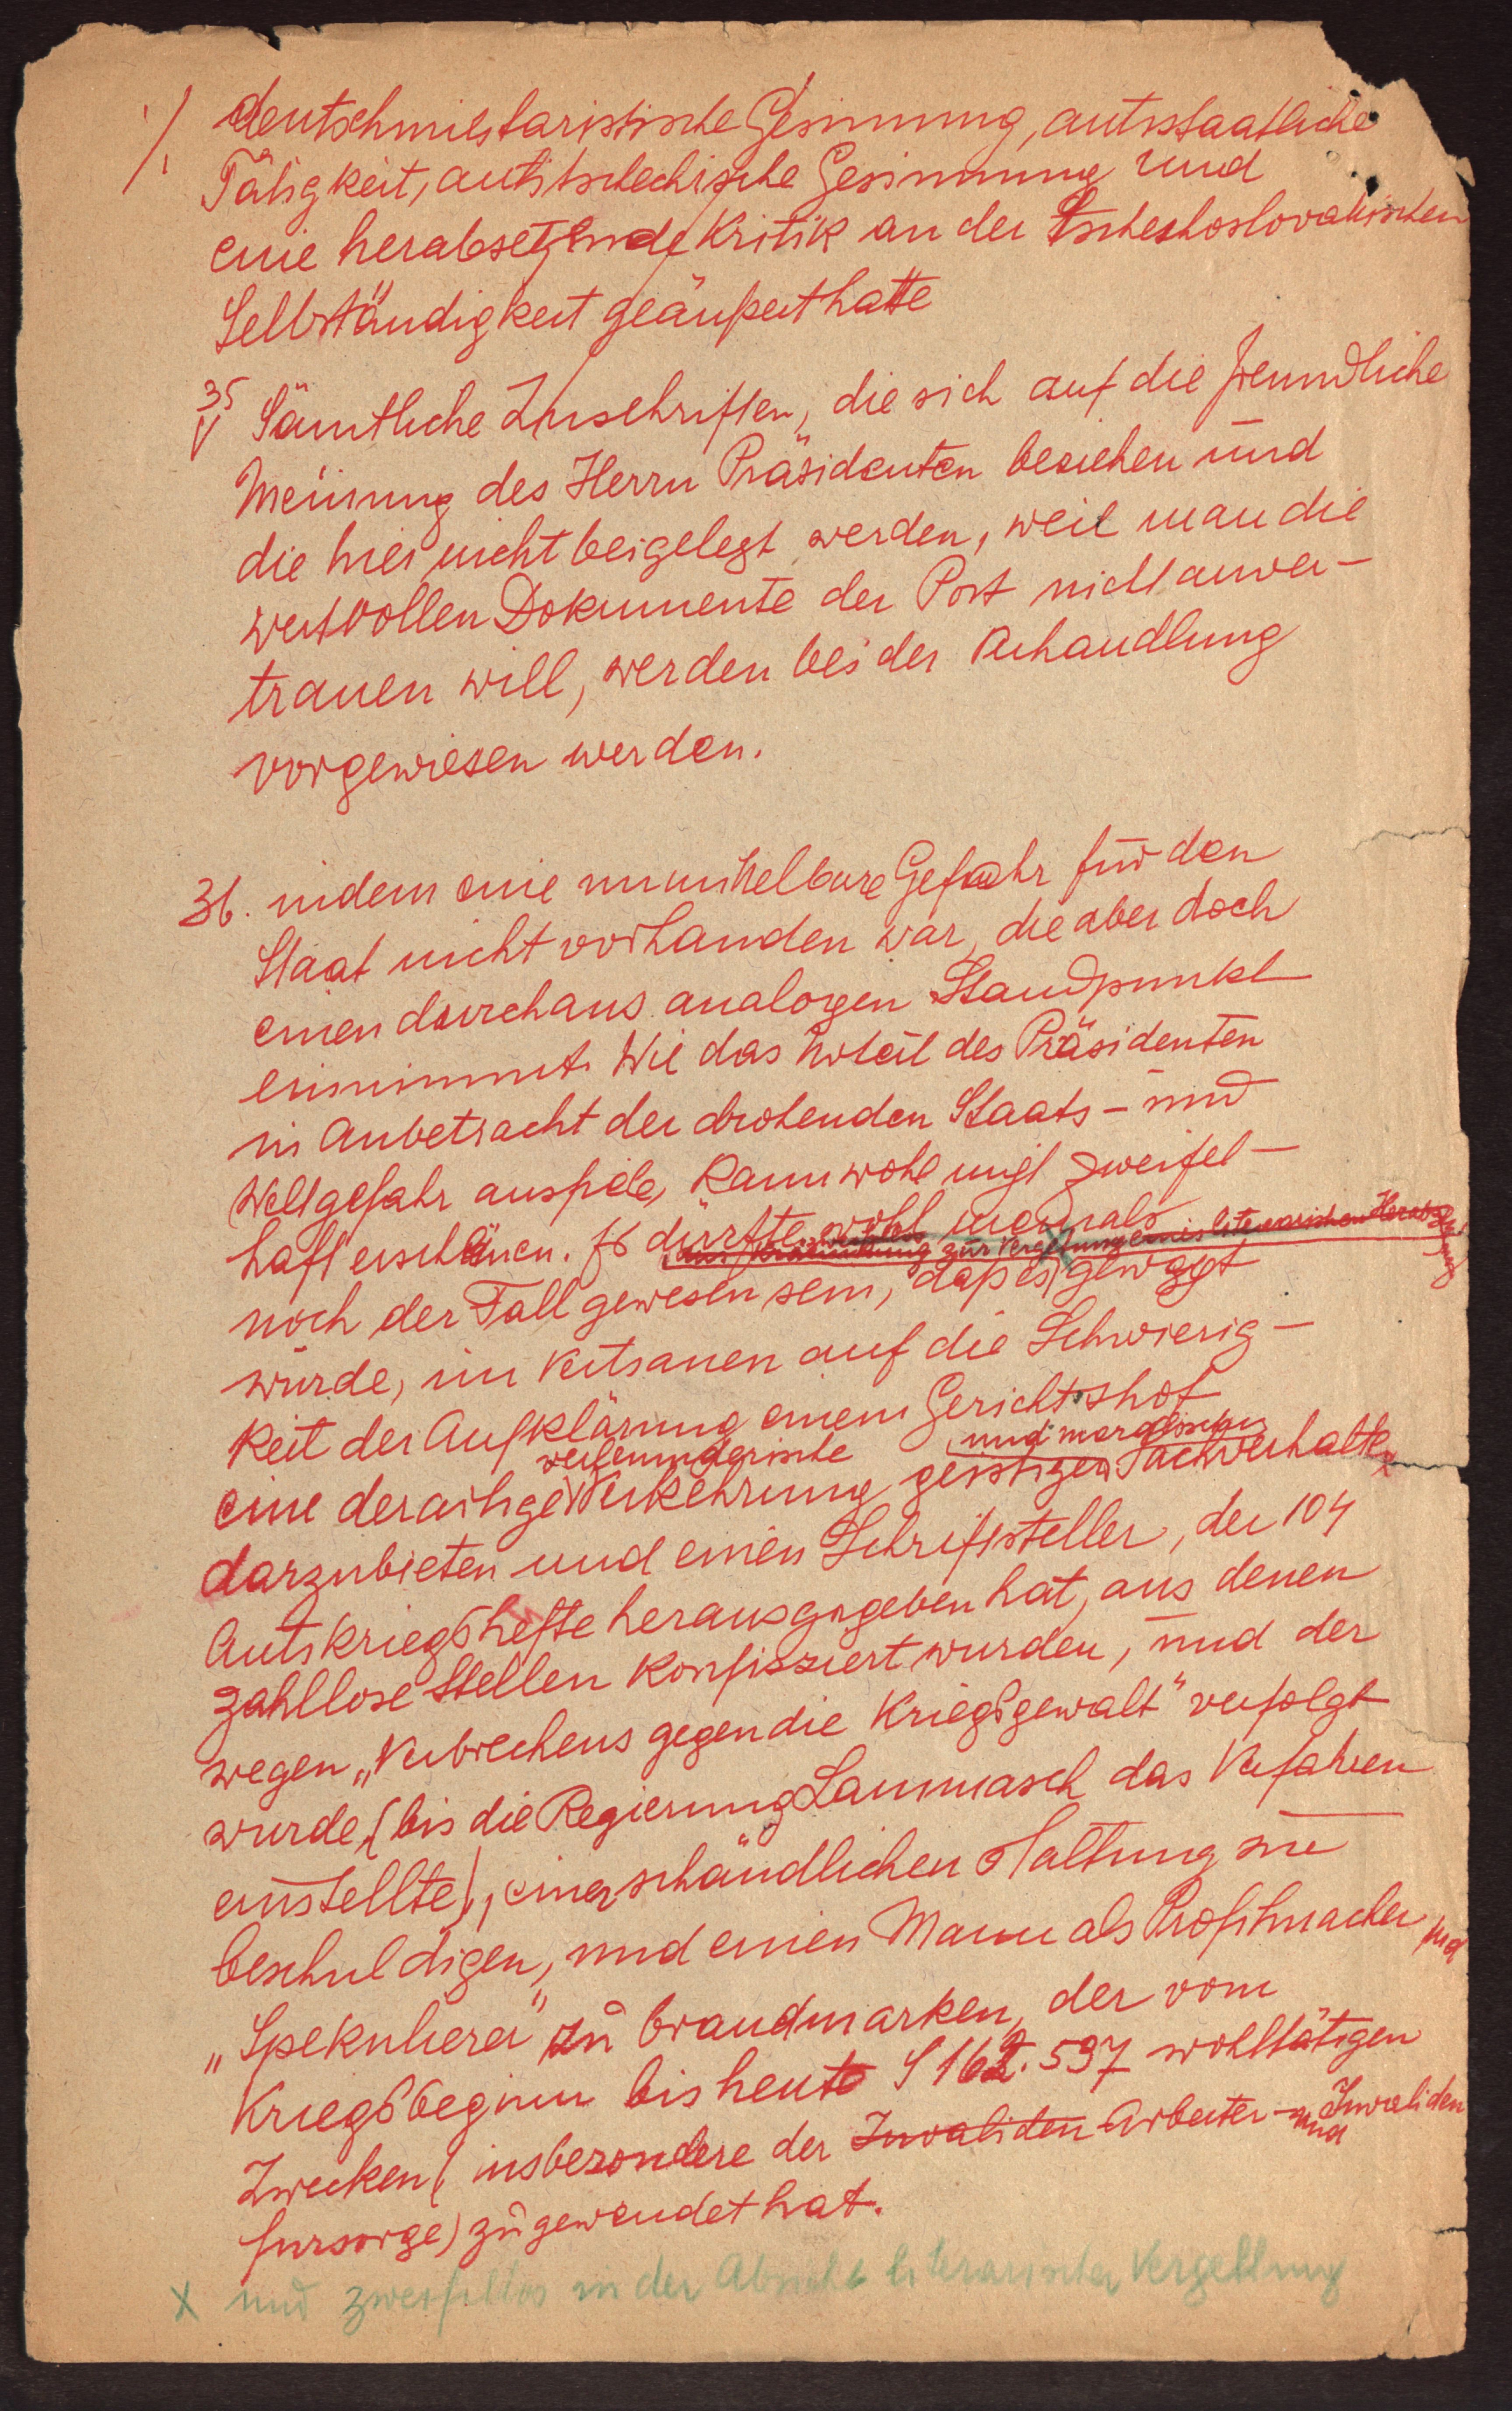 deutschmilitaristische Gesinnung, antistaatliche
Tätigkeit, antitschechische Gesinnung und
eine herabsetzende Kritik an der tschechoslovakischen
Selbständigkeit geäußert hatte
35
Sämtliche Zuschriften, die sich auf die freundliche
Meinung des Herrn Präsidenten beziehen und
die hier nicht beigelegt werden, weil man die
wertvollen Dokumente der Post nicht anver-
trauen will, werden bei der Verhandlung
vorgewiesen werden.
36. indem eine unmittelbare Gefahr für den
Staat nicht vorhanden war, die aber doch
einen durchaus analogen Standpunkt
einnimmt. Wie das Urteil des Präsidenten
in Anbetracht der drohenden Staats- und
Weltgefahr ausfiele, kann wohl nicht zweifel-
haft erscheinen. Es dürfte wohl niemals
zur Vergeltung eines literarischen
noch der Fall gewesen sein, daß es gewagt
würde, im Vertrauen auf die Schwierig-
keit der Aufklärung einem Gerichtshof
verleumderische und moralischer
eine derartige Verkehrung geistiger Sachverhalte x
darzubieten und einen Schriftsteller, der 104
Antikriegshefte herausgegeben hat, aus denen
zahllose Stellen konfisziert wurden, und der
wegen „Verbrechens gegen die Kriegsgewalt" verfolgt
wurde, (bis die Regierung Lammasch das Verfahren
einstellte), einer schändlichen Haltung zu
beschuldigen, und einen Mann als Profitmacher und
„Spekulierer" zu brandmarken, der vom
Kriegsbeginn bis heute S 162.597 wohltätigen
Zwecken (insbesondere der Invaliden Arbeiter- und Invaliden
fürsorge) zugewendet hat.
x und zweifellos in der Absicht literarischer Vergeltung